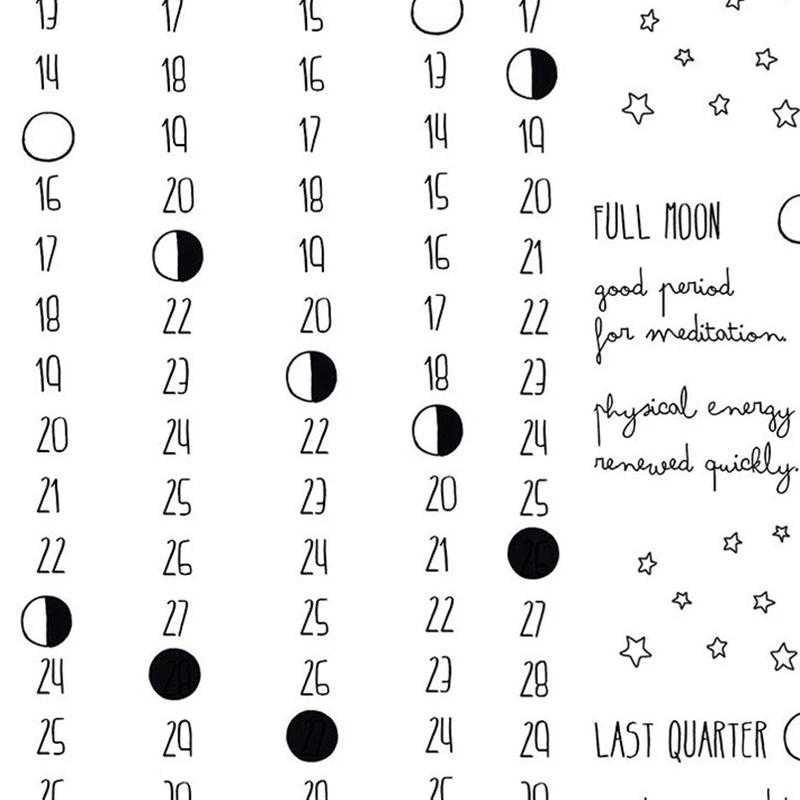 13 17 15 17
14 18 16 13
19 17 14 19
16 20 18 15 20
17 19 16 21
18 22 20 17 22
19 23 18 23
20 24 22 24
21 25 23 20 25
22 26 24 21 26
27 25 22 27
24 28 26 23 28
25 29 27 24 29
FULL MOON
good period
for meditation.
physical energy
renewed quickly.
LAST QUARTER